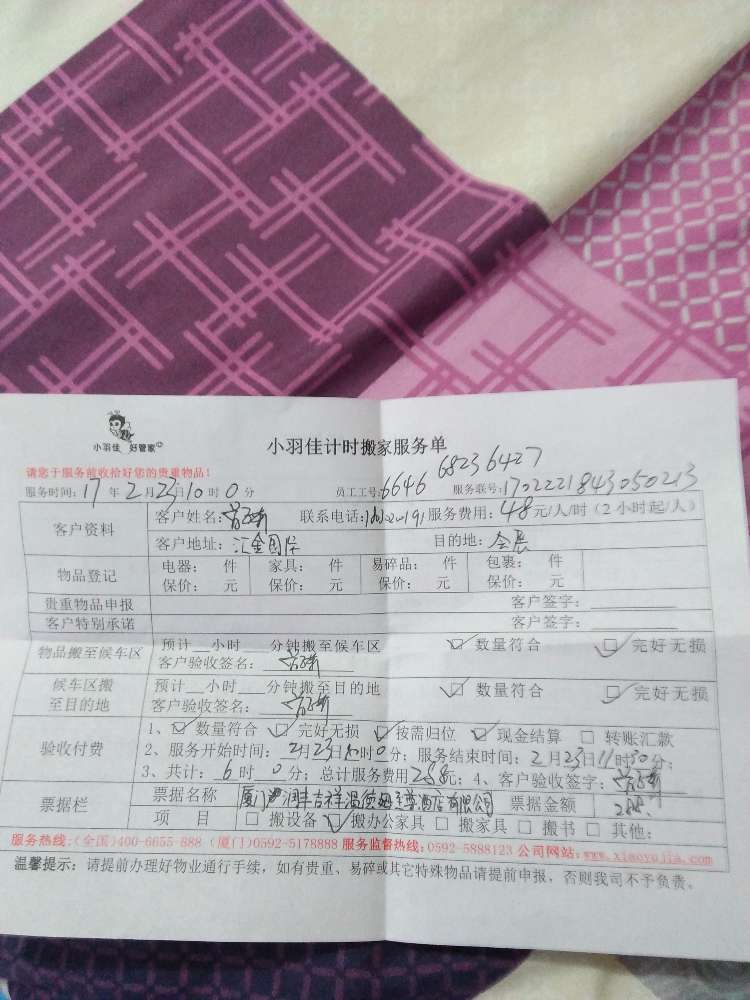 小羽佳 好管家
小羽佳计时搬家服务单
请您于服务前收拾好您的贵重物品！
68236427
服务时间：17年2月23日10时0分 员工工号：6646 服务联号：1702221843050213
客户资料 客户姓名： 联系电话： 服务费用：48元/人/时（2小时起/人）
客户地址：汇金国际 目的地：会展
物品登记 电器： 件 家具： 件 易碎品： 件 包裹： 件
保价： 元 保价： 元 保价： 元 保价： 元
贵重物品申报 客户签字：
客户特别承诺 客户签字：
物品搬至候车区 预计__小时___分钟搬至候车区 数量符合 完好无损
客户验收签名：
候车区搬至目的地 预计__小时___分钟搬至目的地 数量符合 完好无损
客户验收签名：
验收付费 1、数量符合 完好无损 按需归位 现金结算 转账汇款
2、服务开始时间：2月23日10时0分；服务结束时间：2月23日11时30分；
3、共计：6时0分；总计服务费用288元；4、客户验收签字：
票据栏 票据名称 润丰吉祥温德姆至尊酒店有限公司 票据金额 288
项 目 搬设备 搬办公家具 搬家具 搬书 其他：
服务热线：(全国)400-6655-888 (厦门)0592-5178888 服务监督热线：0592-5888123 公司网站：www.xiaoyujia.com
温馨提示：请提前办理好物业通行手续，如有贵重、易碎或其它特殊物品请提前申报，否则我司不予负责。